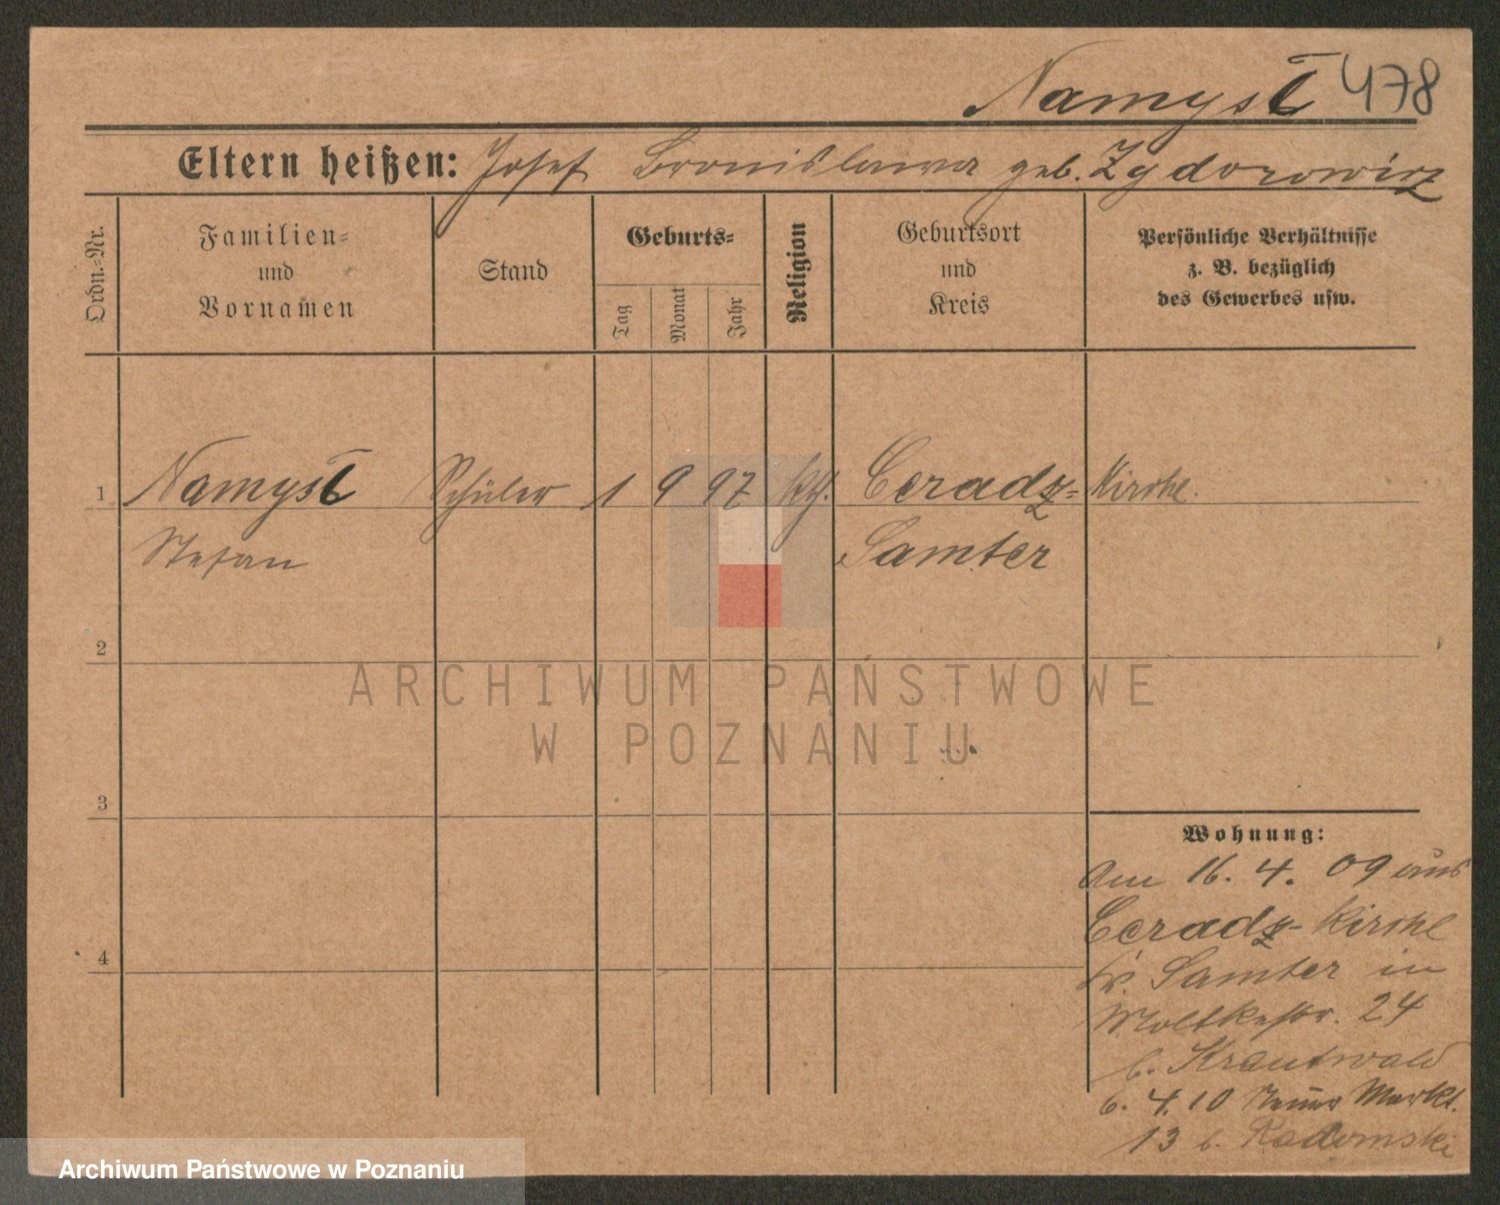 Namysł 478
Eltern heißen: Josef Bronislawa geb. Zydorowicz
Ordn.-Nr.
Familien-
und
Vornamen
Stand
Geburts-
Tag
Monat
Jahr
Religion
Geburtsort
und
Kreis
Persönliche Verhältnisse
z. B. bezüglich
des Gewerbes usw.
1 Namysł Schüler 1 9 97 kth. Ceradz- Kirchl.
Stefan Samter
2
3
4
Wohnung:
Am 16. 4. 09 aus
Ceradz-Kirchl
Kr. Samter in
Moltkestr. 24
b. Krautwald
6. 4. 10 Neuer Markt.
13 b. Radomski
ARCHIWUM PAŃSTWOWE
W POZNANIU
Archiwum Państwowe w Poznaniu